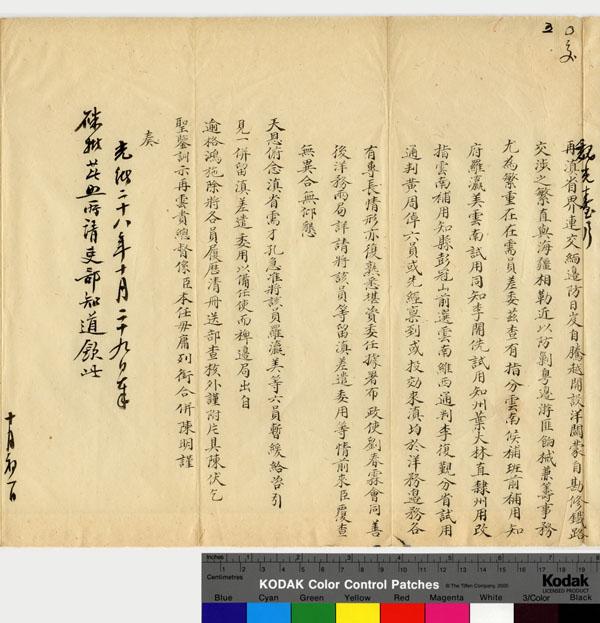 再滇省界連交緬邊防日亟自騰越開設洋關蒙自勘修鐵路
交涉之繁直與海疆相勒近以防剿粵邊游匪餉械兼籌事務
尤為繁重在在需員差委茲查有指分雲南候補班前補用知
府羅瀛美雲南試用同知李開侁試用知州葉大林直隸州用改
指雲南補用知縣彭冠山前選雲南維西通判李復觀分省試用
通判黃周停六員或先經稟到或投効來滇均於洋務邊務各
有專長情形亦復熟悉堪資委任據署布政使劉春霖會同善
後洋務兩局詳請將該員等留滇差遣委用等情前來臣覆查
無異合無仰懇
天恩俯念滇省需才孔急准將該員羅瀛美等六員暫緩給咨引
見一併留滇差遣委用以備任使而裨邊局出自
逾格鴻施除將各員履歷清冊送部查核外謹附片具陳伏乞
聖鑒訓示再雲貴總督係臣本任毋庸列銜合併陳明謹
奏
光緒二十八年十月二十九日奉
硃批著照所請吏部知道欽此
十月初一日
Inches 1 2 3 4 5 6 7 8
Centimetres 1 2 3 4 5 6 7 8 9 10 11 12 13 14 15 16 17 18 19
KODAK Color Control Patches
© The Tiffen Company, 2000
Kodak
LICENSED PRODUCT
Blue Cyan Green Yellow Red Magenta White 3/Color Black